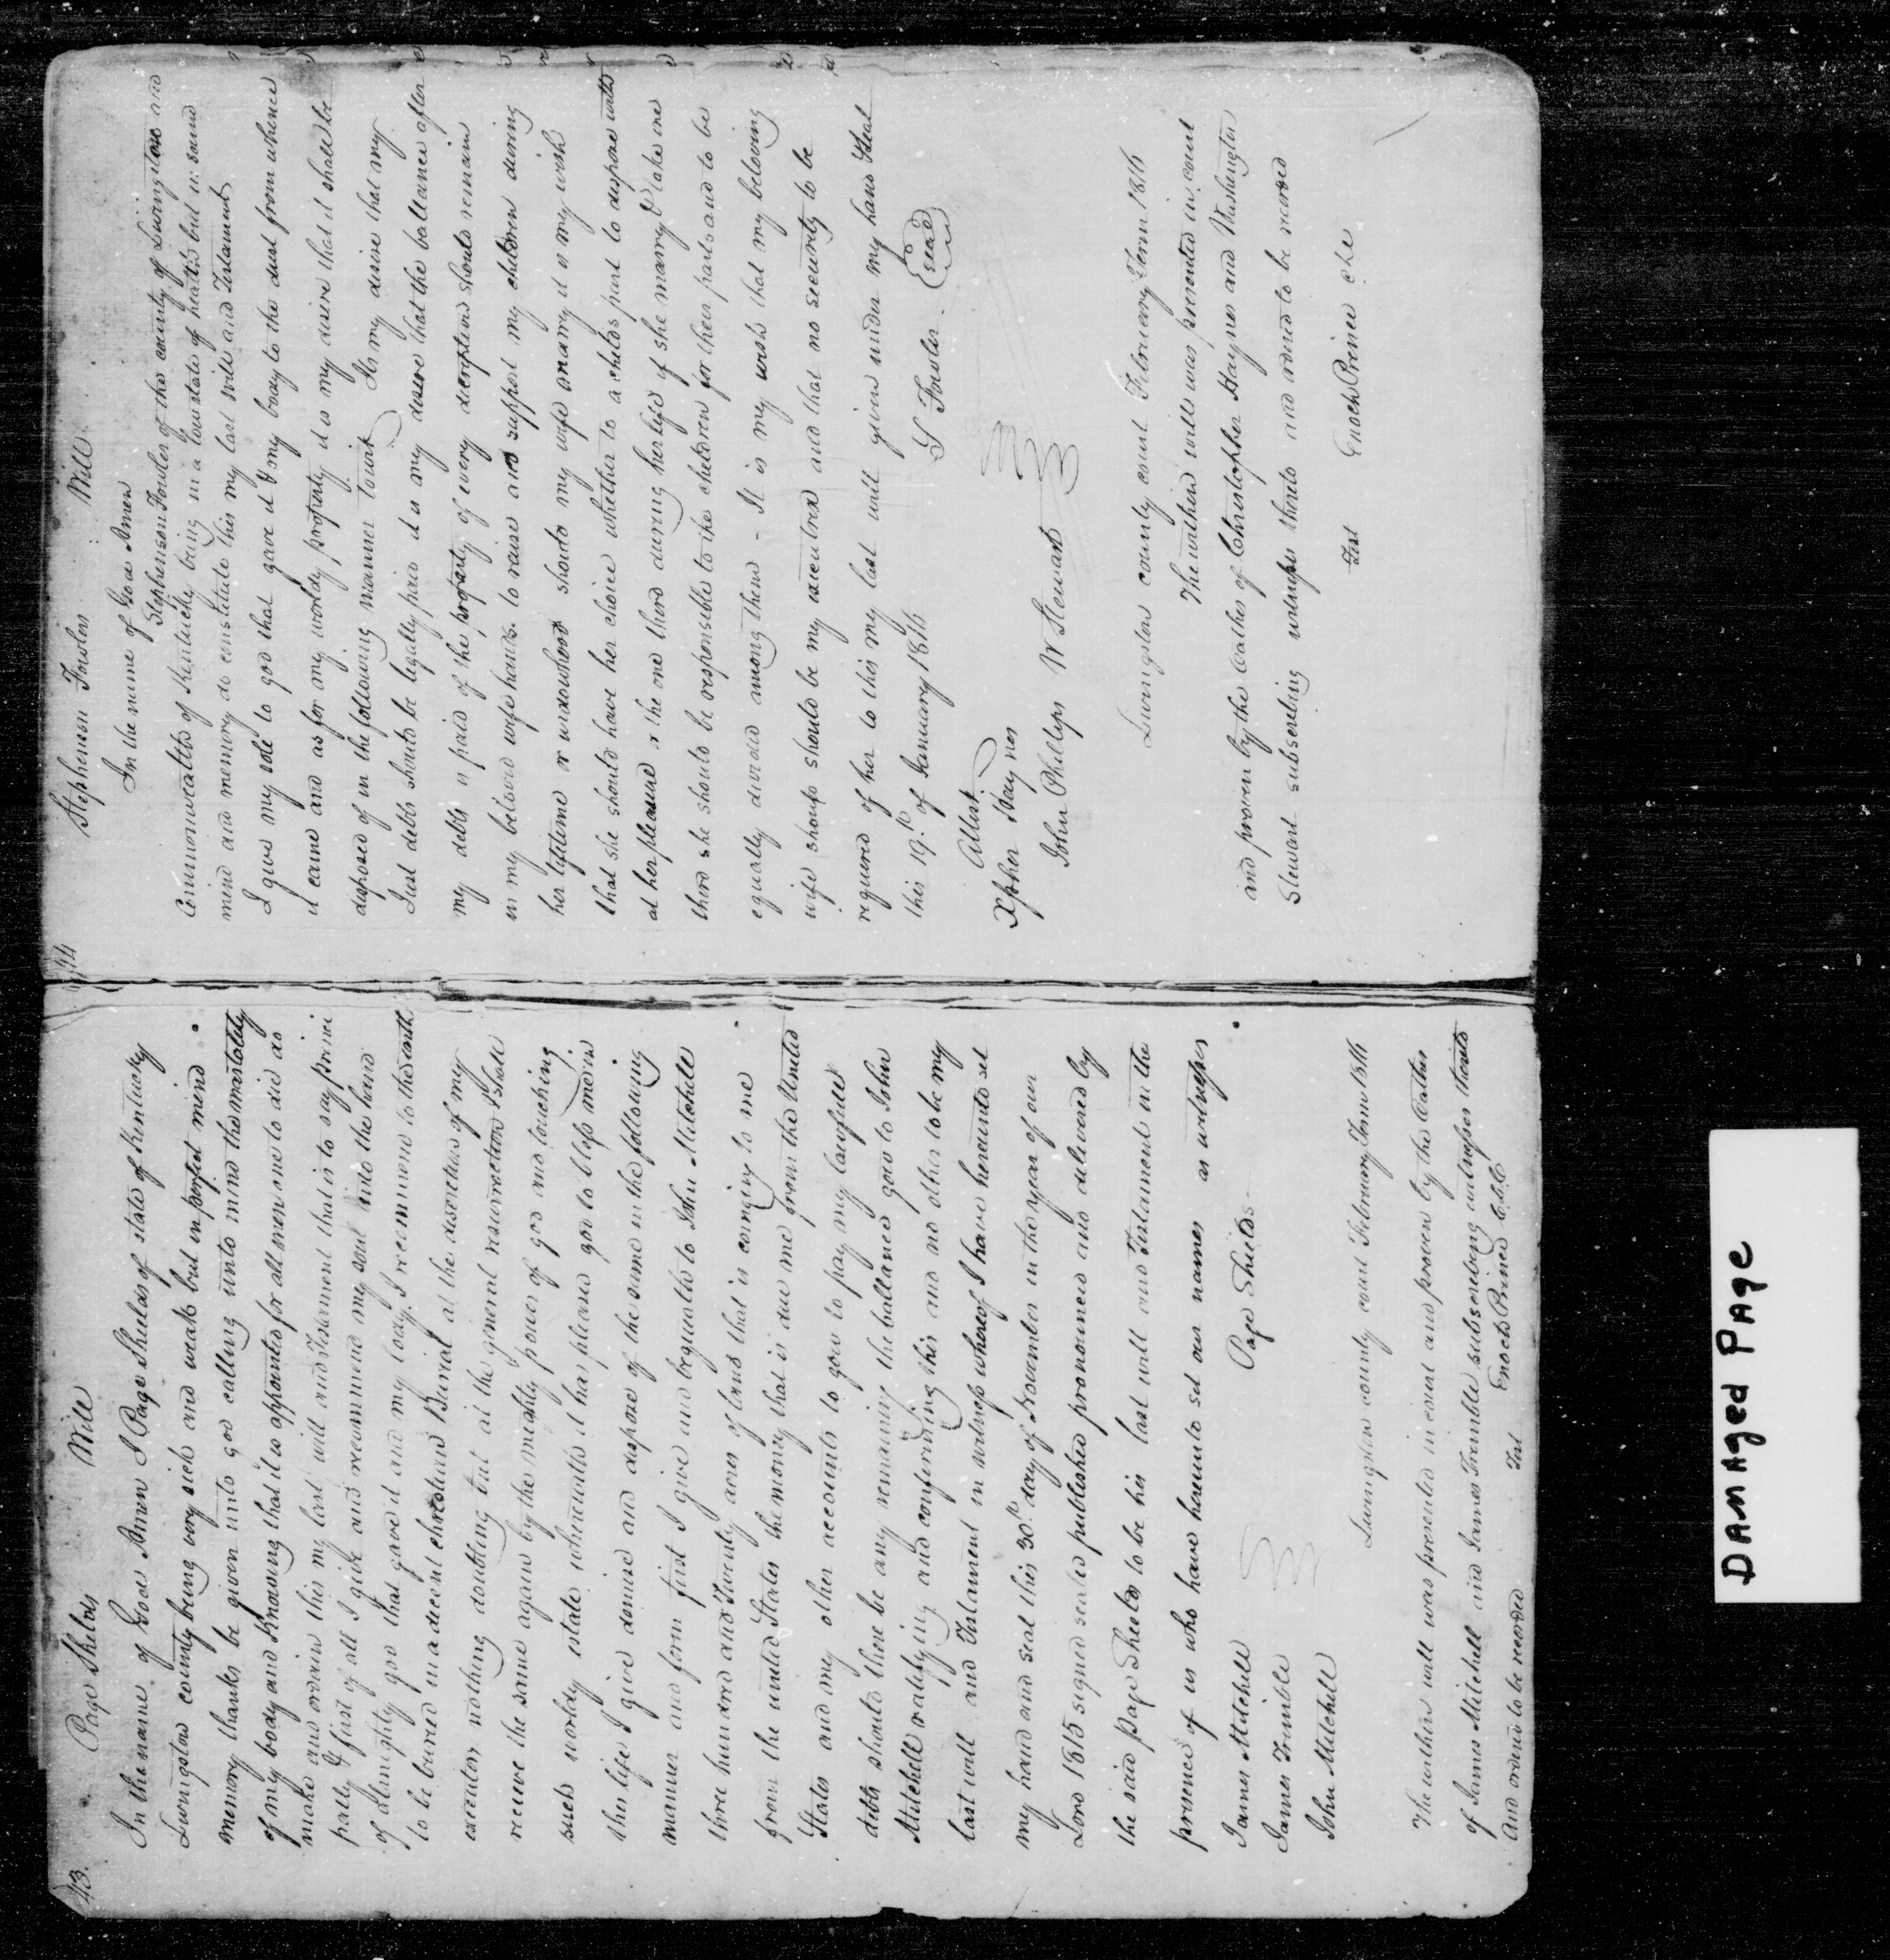 43.
Page Shelds Will
In the name of God Amen I Page Shields of state of Kentucky
Livingston county being very sick and weak but in perfect mind
memory thanks be given unto god calling unto mind the mortality
of my body and Knowing that it is appointed for all men one to die do
make and ordain this my last will and Testament that is to say princi
pally & first of all I give and recommend my soul into the hand
of almighty god that gave it and my body I recommend to the earth
to be buried in a decent christian Burial at the discretion of my
executor nothing doubting but at the general resurrection I shall
receive the same again by the mighty power of god and touching
such worldy estate wherewith it has pleased god to bless me in
this life I give demise and dispose of the same in the following
manner and form first I give and bequeath to John Mitchell
three hundred and Twenty acres of land that is coming to me
from the united States the money that is due me from the United
States and my other accounts to goes to pay my lawfull
debts should there be any remaining the ballance goes to John
Mitchell ratifying and confirming this and no other to be my
last will and Testament in witness whereof I have hereunto set
my hand and seal this 30th day of November in the year of our
Lord 1815 signed sealed published pronounced and delivered by
the said Page Sheelds to be his last will and Testament in the
presence of us who have hereunto set our names as witnesses
James Mitchell Page Shields
James Trimble
John Mitchell
Livingston county court February Term 1816
The within will was presented in court and proven by the Oathes
of James Mitchell and James Tremble subscribing witnesses thereto
And orderd to be recorded Test Enoch Prince C.L.C
44
Stephenson Fowlers Will
In the name of God Amen
Stephenson Fowler of the county of Livingston and
Commonwealth of Kentucky being in a low state of health but in sound
mind and memory do constitute this my last will and Testament
I give my sole to god that gave it & my body to the dust from whence
it came and as for my worldy property it is my desire that it shall be
disposed of in the following manner towit Its my desire that my
Just debts should be legally paid it is my desire that the ballance after
my debts is paid of the property of every discription should remain
in my beloved wife hands to raise and support my children during
her lifetime or widowhood should my wife marry it is my wish
that she should have her choice whether to a childs part to dispose with
at her pleasure or the one third during her life if she marry & take one
third she should be responsible to the children for their parts and to be
equally divided among them - It is my wish that my beloving
wife should should be my executrix and that no security to be
required of her to this my last will given under my hand & seal
this 19th of January 1816
S Fowler. seal
Attest.
Xpher Haynes
John Phillips W Stewart
Livingston county court February Term 1816
The within will was presented in court
and proven by the Oathes of Christopher Haynes and Washington
Stewart subscribing witnesses thereto and orderd to be recorded
Test Enoch Prince clk
DAMAGED PAGE